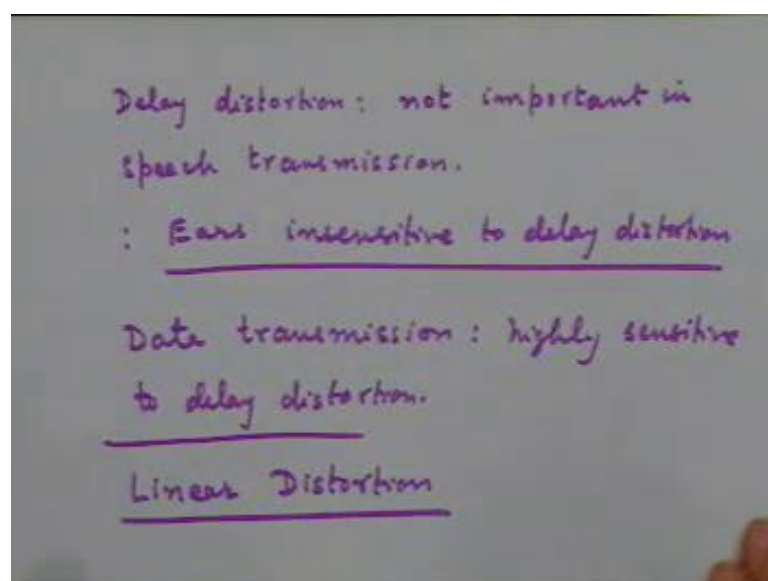 Delay distortion: not important in
speech transmission.
: Ears insensitive to delay distortion
Data transmission: highly sensitive
to delay distortion.
Linear Distortion